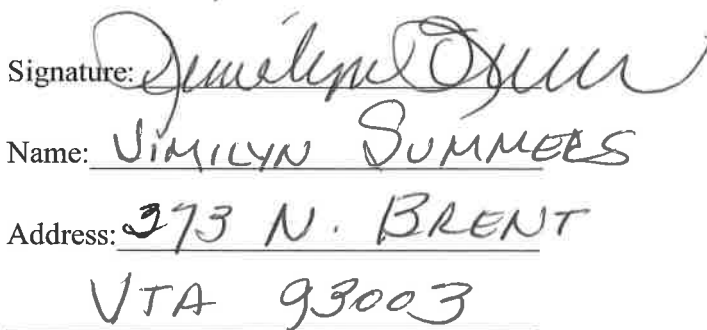 Signature:
Name: JIMILYN SUMMERS
Address: 273 N. BRENT
VTA 93003